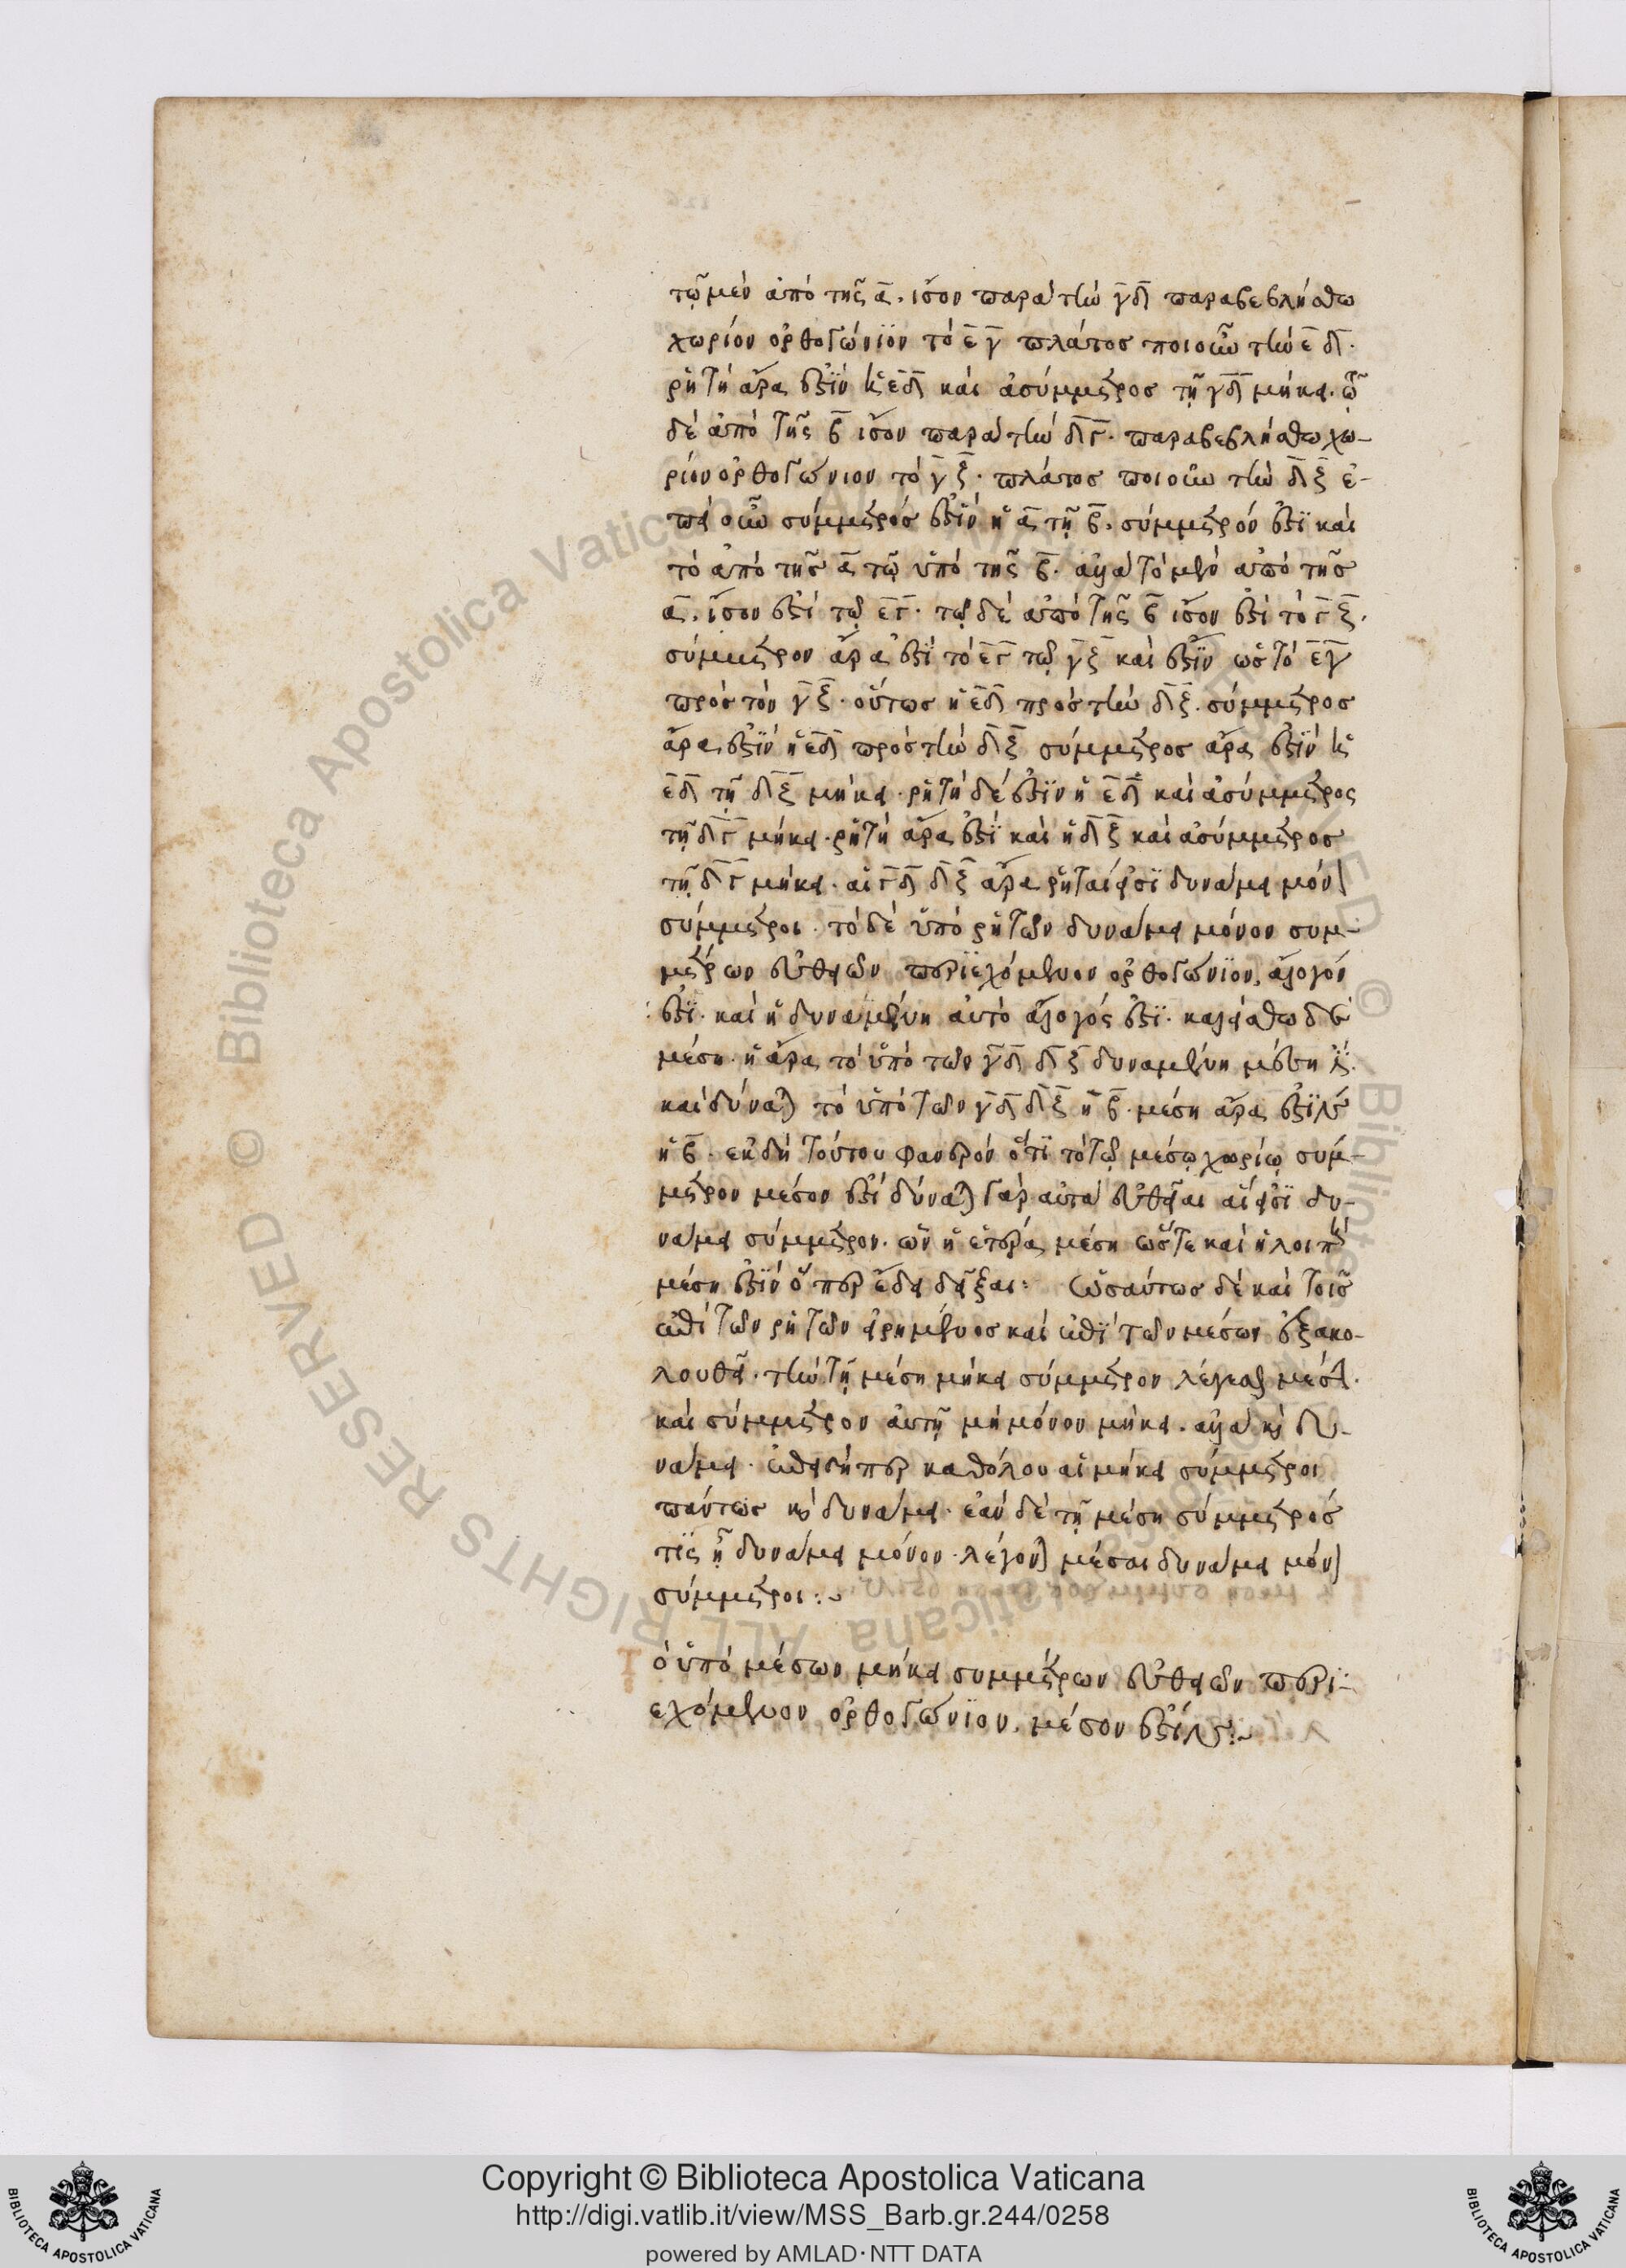 τῷ μὲν ἀπὸ τῆς α. ἴσον παρὰ τὴν γδ παραβεβλήσθω
χωρίον ὀρθογώνιον τὸ εγ πλάτος ποιοῦν τὴν εδ.
ῥητὴ ἄρα ἐστὶν ἡ εδ καὶ ἀσύμμετρος τῇ γδ μήκει. τῷ
δὲ ἀπὸ τῆς β ἴσον παρὰ τὴν δγ. παραβεβλήσθω χω-
ρίον ὀρθογώνιον τὸ γξ. πλάτος ποιοῦν τὴν δξ ἐ-
πεὶ οὖν σύμμετρός ἐστὶν ἡ α τῇ β. σύμμετρόν ἐστι καὶ
τὸ ἀπὸ τῆς α τῷ ὑπὸ τῆς β. ἀλλὰ τὸ μὲν ἀπὸ τῆς
α. ἴσον ἐστὶ τῷ εγ. τῷ δὲ ἀπὸ τῆς β ἴσον ἐστὶ τὸ γξ.
σύμμετρον ἄρα ἐστὶ τὸ εγ τῷ γξ καὶ ἔστιν ὡς τὸ εγ
πρὸς τὸν γξ. οὕτως ἡ εδ πρὸς τὴν δξ. σύμμετρος
ἄρα ἐστὶν ἡ εδ πρὸς τὴν δξ σύμμετρος ἄρα ἐστὶν ἡ
εδ τῇ δξ μήκει. ῥητὴ δέ ἐστιν ἡ εδ καὶ ἀσύμμετρος
τῇ δγ μήκει. ῥητὴ ἄρα ἐστὶ καὶ ἡ δξ καὶ ἀσύμμετρος
τῇ δγ μήκει. αἱ γδ δξ ἄρα ῥηταί εἰσι δυνάμει μόνον
σύμμετροι. τὸ δὲ ὑπὸ ῥητῶν δυνάμει μόνον συμ-
μέτρων εὐθειῶν περιεχόμενον ὀρθογώνιον, ἄλογόν
ἐστι. καὶ ἡ δυναμένη αὐτὸ ἄλογός ἐστι. καλείσθω δὲ
μέση. ἡ ἄρα τὸ ὑπὸ τῶν γδ δξ δυναμένη μέση ἐστί.
καὶ δύναται τὸ ὑπὸ τῶν γδ δξ ἡ β. μέση ἄρα ἐστὶν
ἡ β. ἐκ δὴ τούτου φανερὸν ὅτι τὸ τῷ μέσῳ χωρίῳ σύμ-
μετρον μέσον ἐστὶ δύναται γὰρ αὐτὰ εὐθεῖαι αἵ εἰσι δυ-
νάμει σύμμετρον. ὧν ἡ ἑτέρα μέση ὥστε καὶ ἡ λοιπὴ
μέση ἐστὶν ὅπερ ἔδει δεῖξαι: ὡσαύτως δὲ καὶ τοῖς
ἐπὶ τῶν ῥητῶν εἰρημένος καὶ ἐπὶ τῶν μέσων ἐξακο-
λουθεῖ. τὴν τῇ μέση μήκει σύμμετρον λέγεσθαι μέσην.
καὶ σύμμετρον αὐτῇ μὴ μόνον μήκει. ἀλλὰ καὶ δυ-
νάμει. ἐπειδήπερ καθόλου αἱ μήκει σύμμετροι
πάντως καὶ δυνάμει. ἐὰν δὲ τῇ μέση σύμμετρός
τις ᾖ δυνάμει μόνον. λέγονται μέσαι δυνάμει μόνον
σύμμετροι:~
ὁ ὑπὸ μέσων μήκει συμμέτρων εὐθειῶν περι-
εχόμενον ὀρθογώνιον. μέσον ἐστίν:~
Copyright © Biblioteca Apostolica Vaticana
http://digi.vatlib.it/view/MSS_Barb.gr.244/0258
powered by AMLAD·NTT DATA